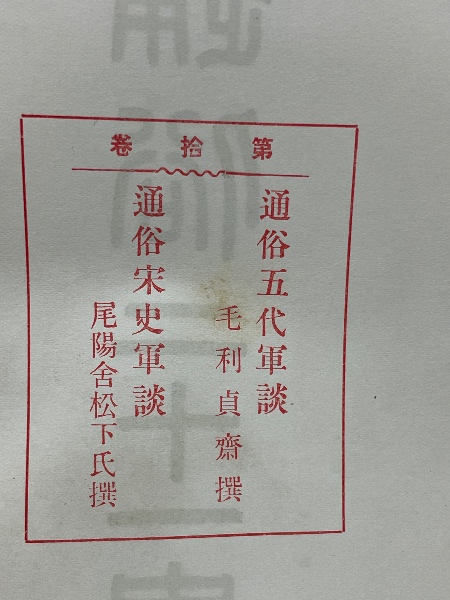 第拾卷
通俗五代軍談
毛利貞齋撰
通俗宋史軍談
尾陽舍松下氏撰